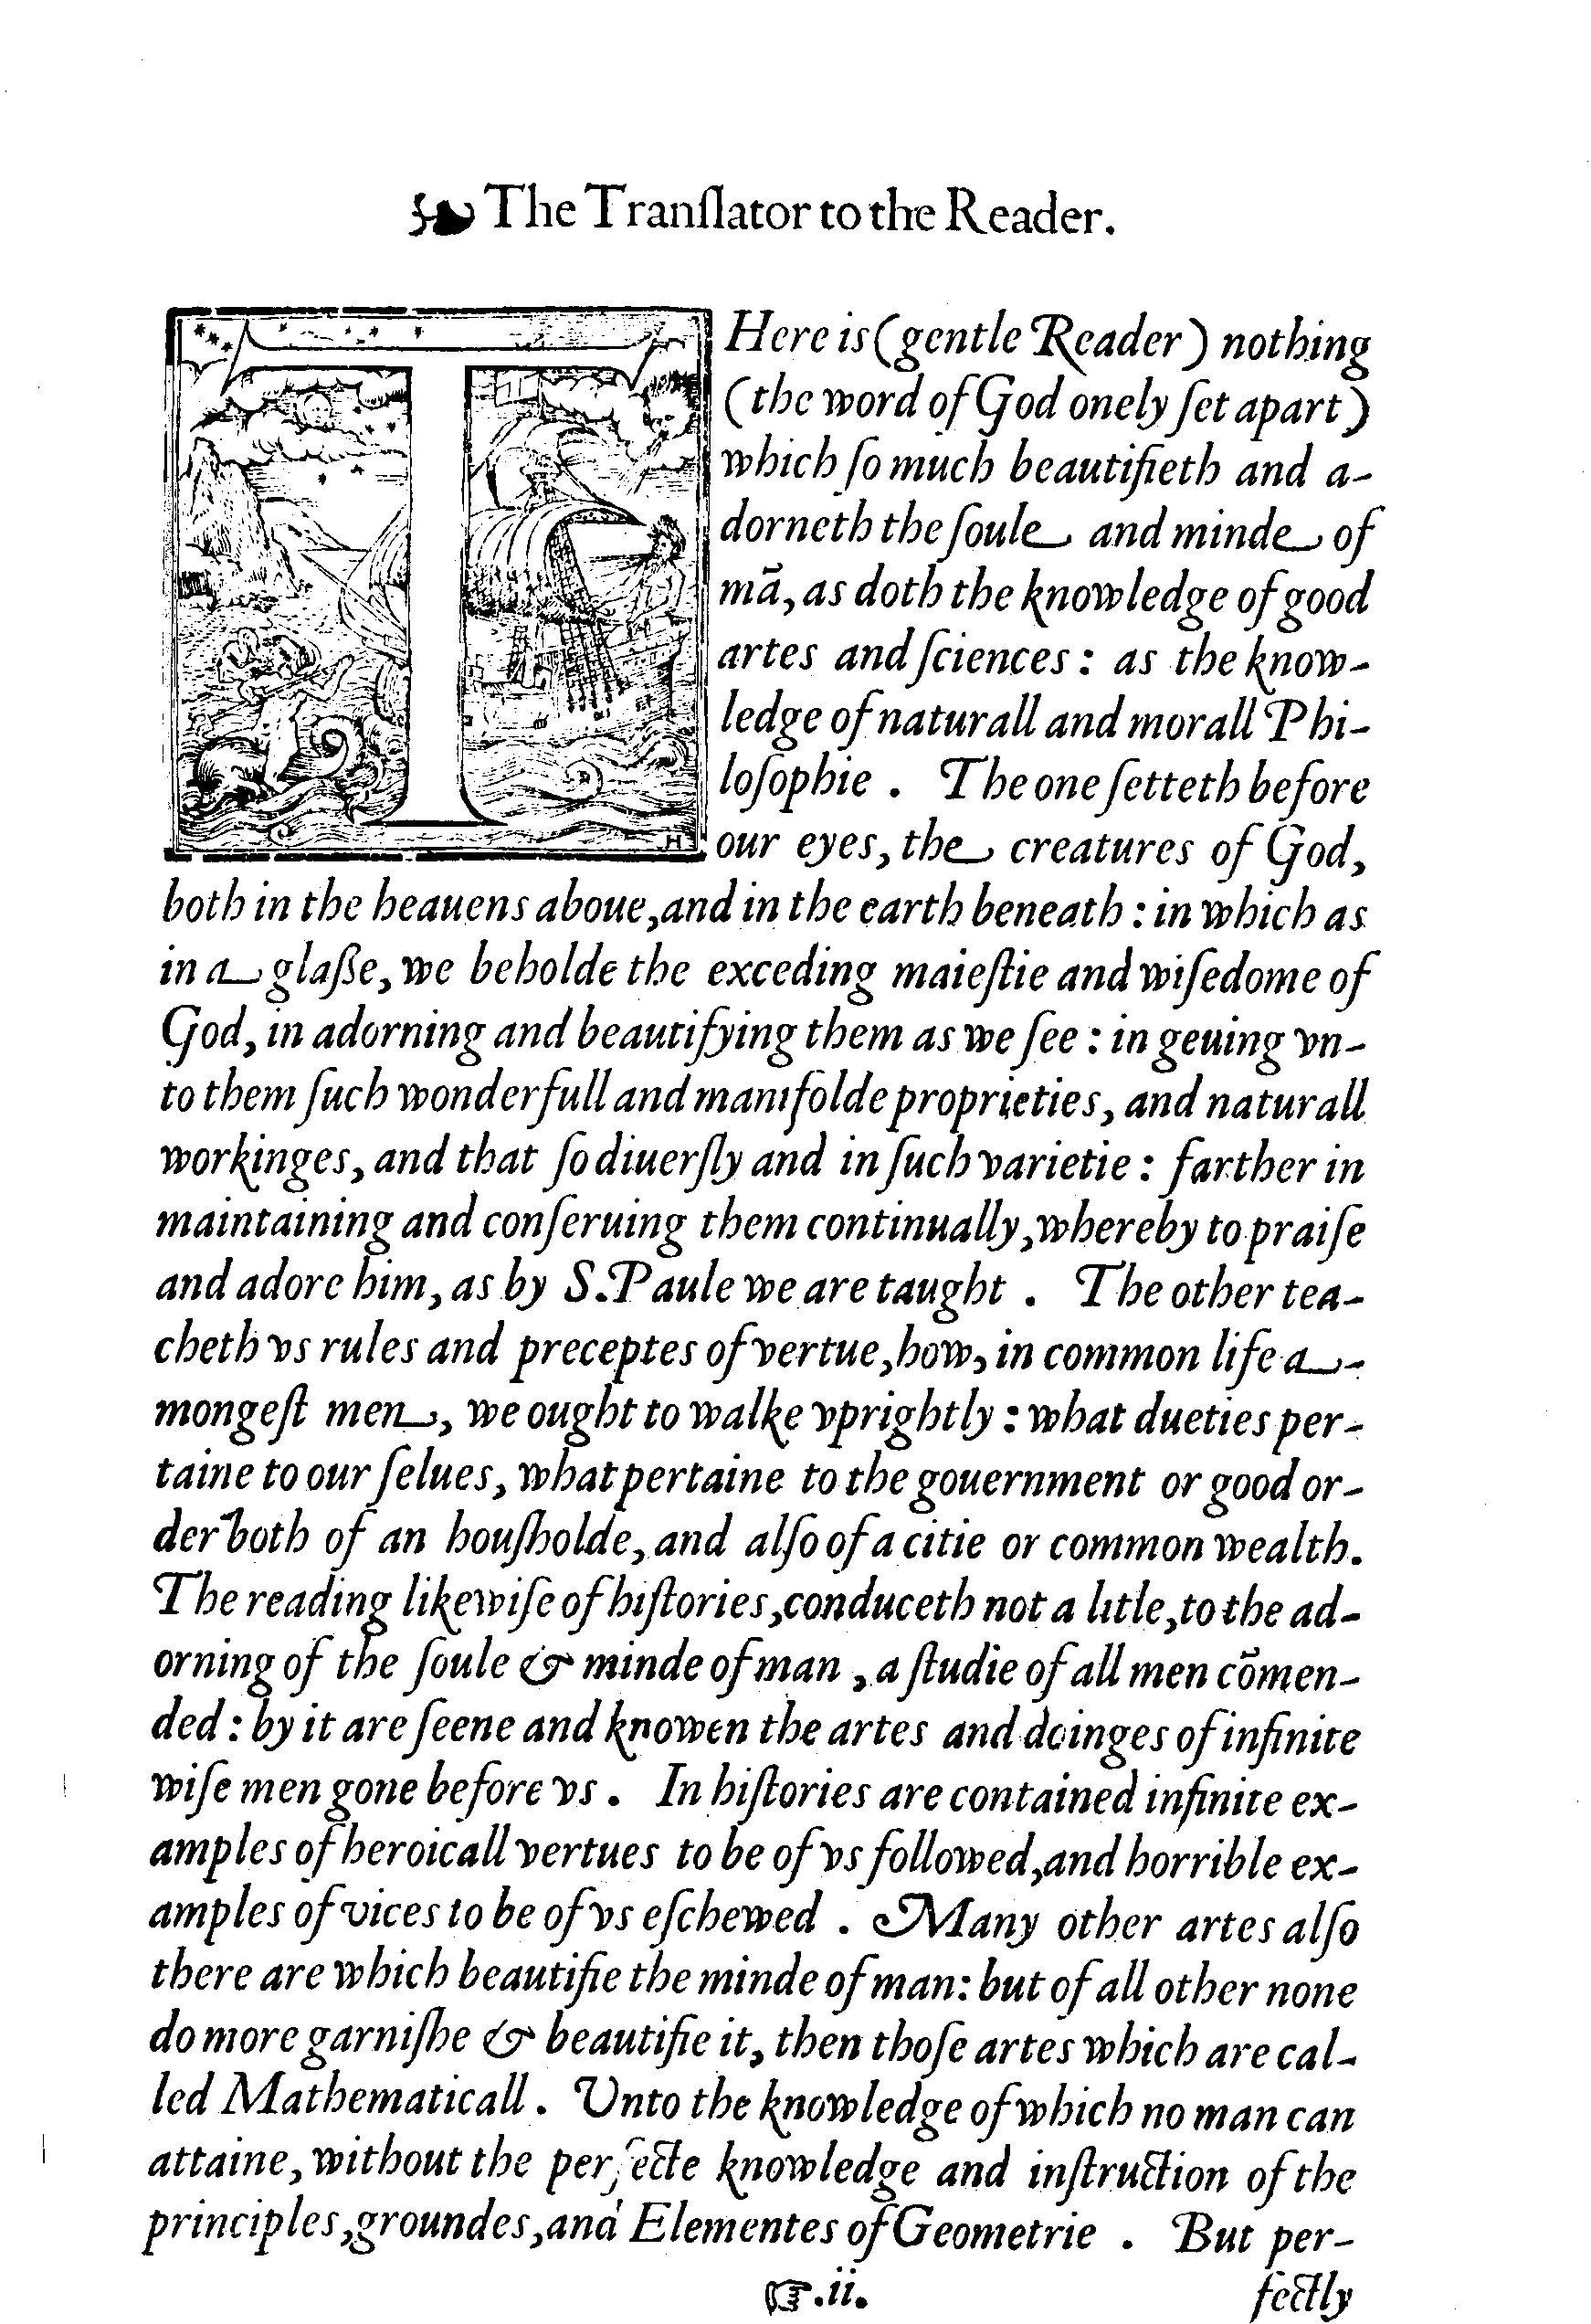 ❧ The Tranſlator to the Reader.
THere is (gentle Reader) nothing
(the word of God onely ſet apart)
which ſo much beautifieth and a-
dorneth the ſoule and minde of
mā, as doth the knowledge of good
artes and ſciences: as the know-
ledge of naturall and morall Phi-
loſophie. The one ſetteth before
our eyes, the creatures of God,
both in the heauens aboue, and in the earth beneath: in which as
in a glaſſe, we beholde the exceding maieſtie and wiſedome of
God, in adorning and beautifying them as we ſee: in geuing vn-
to them ſuch wonderfull and manifolde proprieties, and naturall
workinges, and that ſo diuerſly and in ſuch varietie: farther in
maintaining and conſeruing them continually, whereby to praiſe
and adore him, as by S. Paule we are taught. The other tea-
cheth vs rules and preceptes of vertue, how, in common life a-
mongeſt men, we ought to walke vprightly: what dueties per-
taine to our ſelues, what pertaine to the gouernment or good or-
der both of an houſholde, and alſo of a citie or common wealth.
The reading likewiſe of hiſtories, conduceth not a litle, to the ad-
orning of the ſoule & minde of man, a ſtudie of all men cōmen-
ded: by it are ſeene and knowen the artes and doinges of infinite
wiſe men gone before vs. In hiſtories are contained infinite ex-
amples of heroicall vertues to be of vs followed, and horrible ex-
amples of vices to be of vs eſchewed. Many other artes alſo
there are which beautifie the minde of man: but of all other none
do more garniſhe & beautifie it, then thoſe artes which are cal-
led Mathematicall. Unto the knowledge of which no man can
attaine, without the perfecte knowledge and inſtruction of the
principles, groundes, and Elementes of Geometrie. But per-
☞.ii. fectly